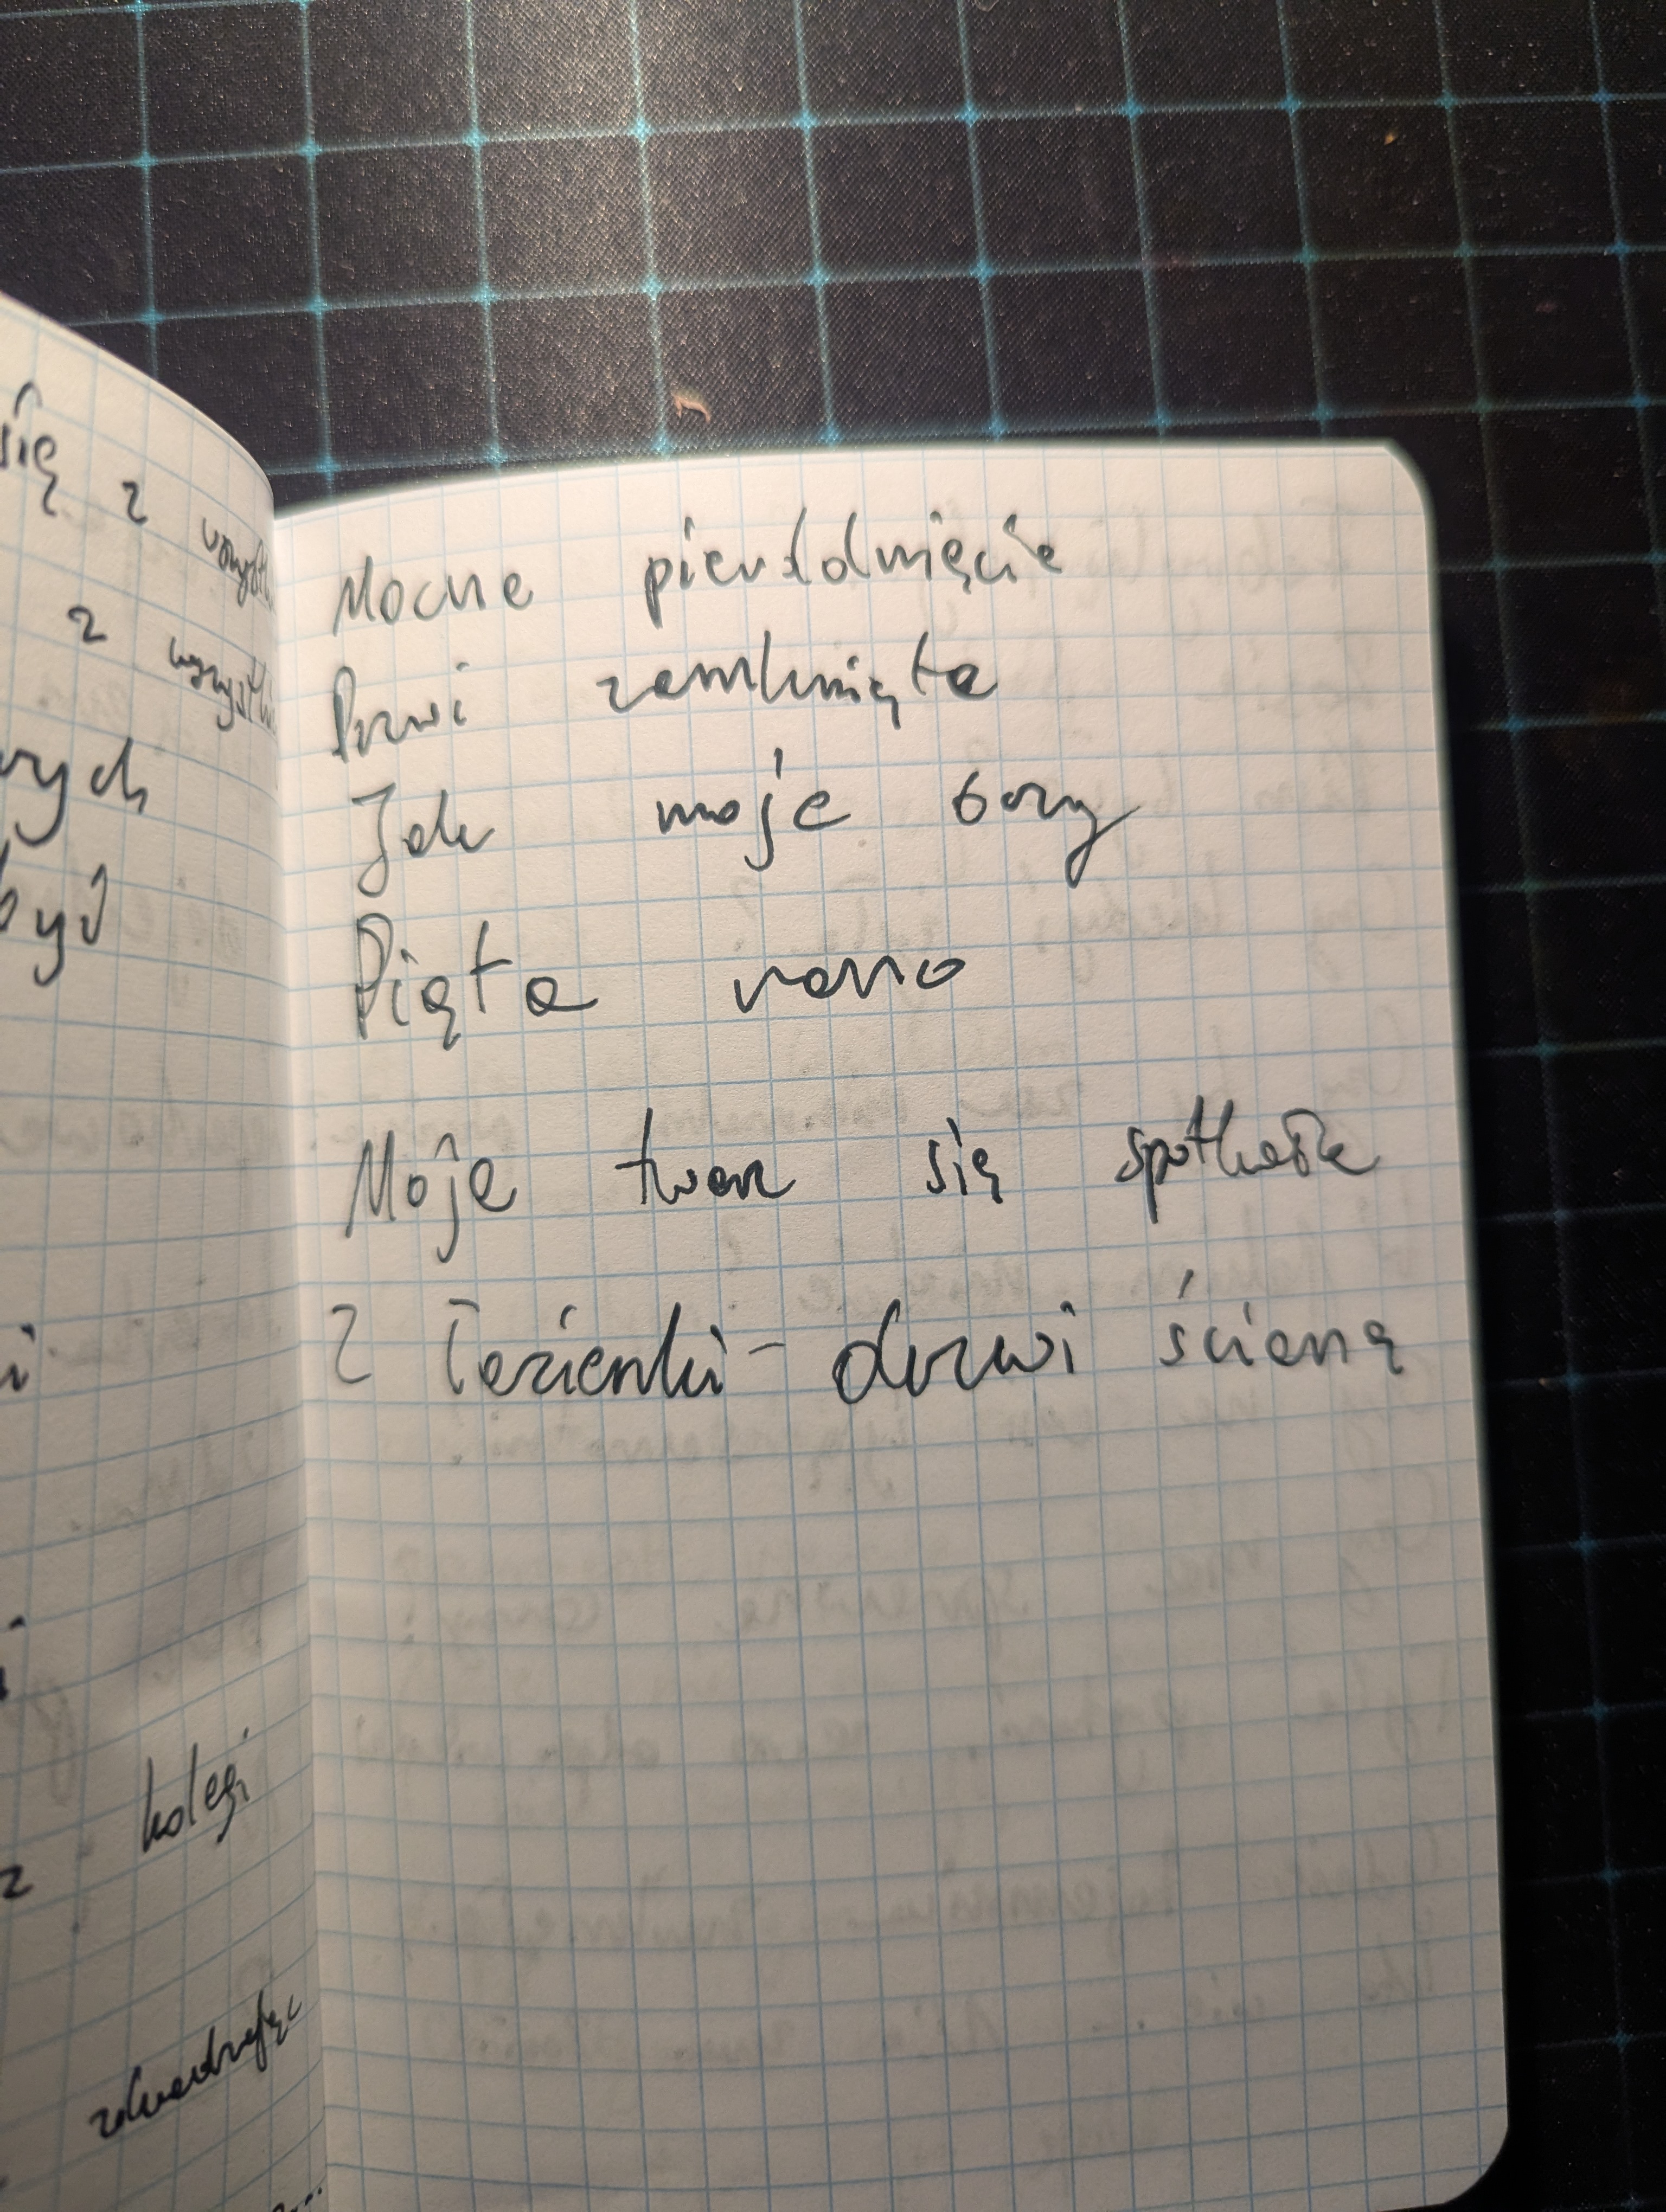 się z
z wszystki
rych
był
kolegi
z
Mocne pierdolnięcie
Drzwi zamknięte
Jak moje oczy
Piąta rano
Moja twarz się spotkała
Z łazienki - drzwi ścianą